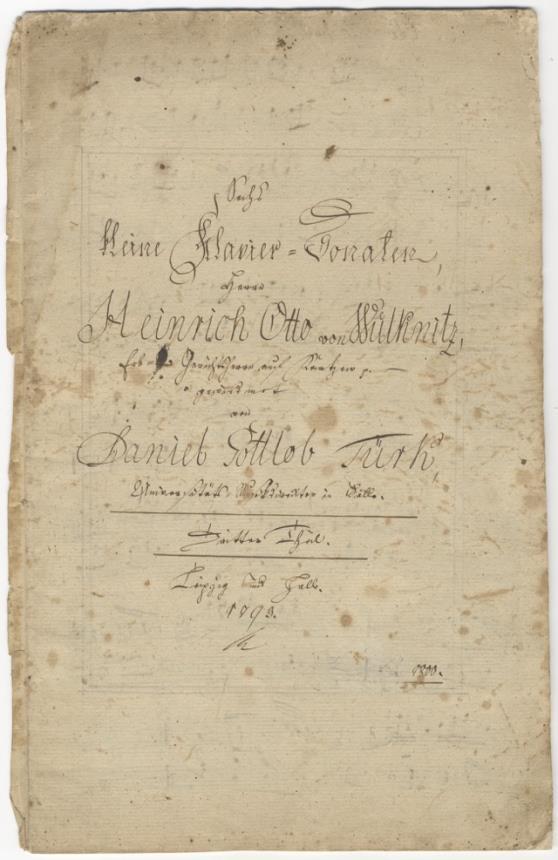 Sechs
kleine Klavier-Sonaten,
Herrn
Heinrich Otto von Wülknitz,
Erb- Gerichtsherrn auf
gewidmet
von
Daniel Gottlob Türk,
Universitäts-Musikdirektor in Halle.
Dritter Theil.
Leipzig und Halle.
1793.
1800.